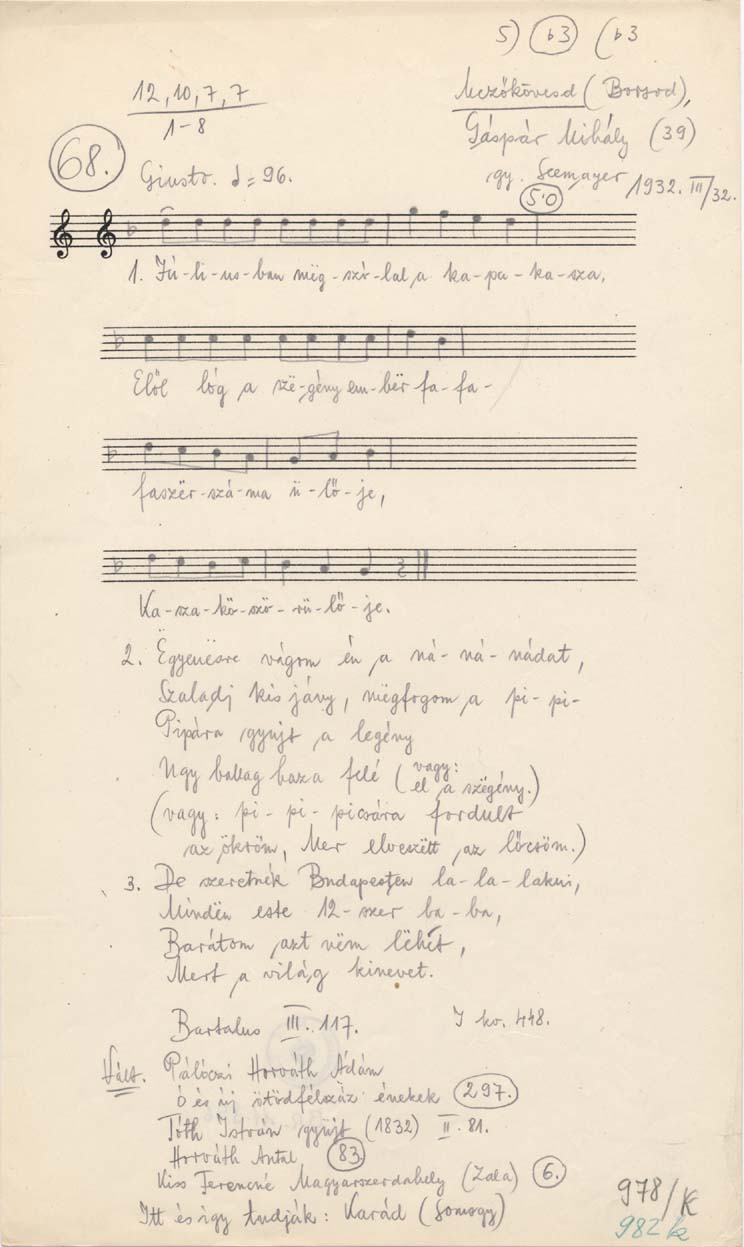 5) (b3) (b3
12, 10, 7, 7
1-8
Mezőkövesd (Borsod),
Gáspár Mihály (39)
68.
Giusto. = 96.
gy. Seemayer 1932. III/32.
5·0
1. Jú-li-us-ban mëg-szó-lal a ka-pa-ka-sza,
Elől lóg a szë-gény em-bër fa-fa-
faszër-szá-ma ü-lő-je,
Ka-sza-kö-szö-rü-lő-je.
2. Ëgyenësre vágom én a ná-ná-nádat,
Szaladj kis jány, mëgfogom a pi-pi-
Pipára gyujt a legény
Ugy ballag haza felé (vagy:
el a szëgény.)
(vagy: pi-pi-picsára fordult
az ökröm, Mer elveszëtt az lőcsöm.)
3. De szeretnék Budapesten la-la-lakni,
Mindën este 12-szer ba-ba,
Barátom azt nëm lëhet,
Mert a világ kinevet.
Bartalus III. 117. I ko. 448.
Vált. Pálóczi Horváth Ádám
Ó és új ötödfélszáz énekek 297.
Tóth István gyüjt (1832) II. 81.
Horváth Antal 83.
Kiss Ferencné Magyarszerdahely (Zala) 6.
Itt és így tudják: Karád (Somogy)
978/K
982 k